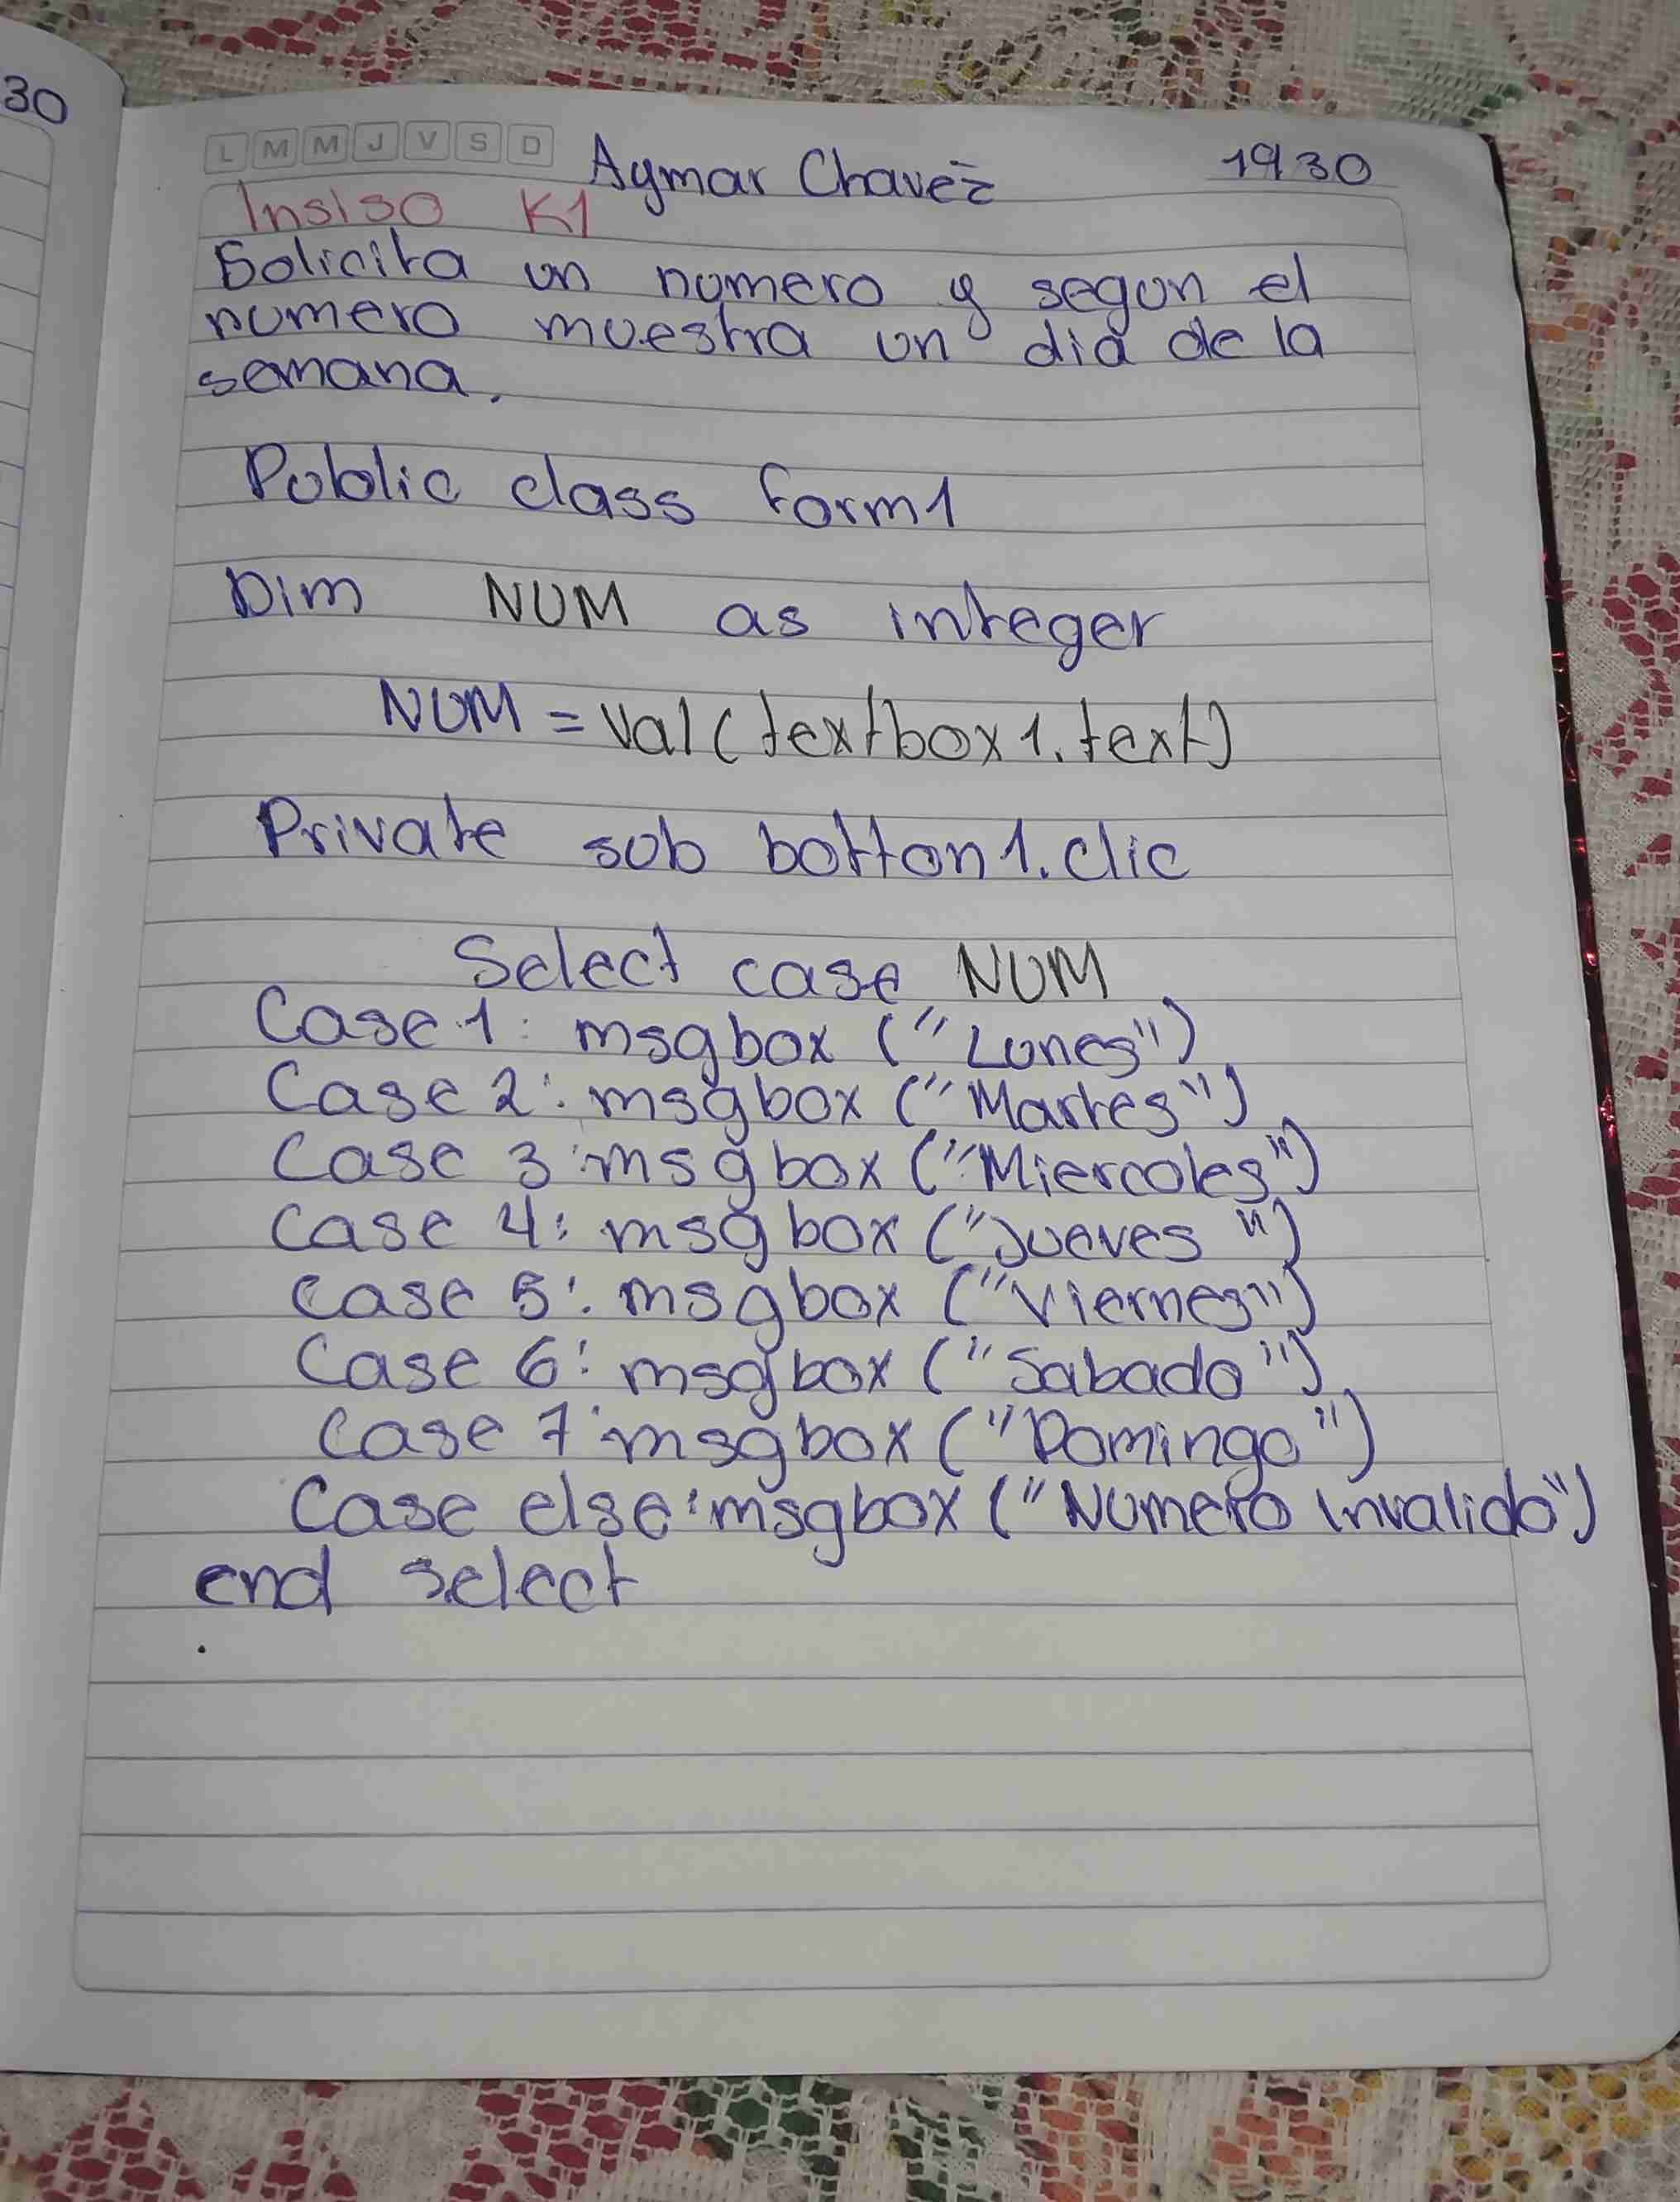 30
L M M J V S D
Aymar Chavez 19/30
Insiso K1
Solicita un numero y segun el
numero muestra un dia de la
semana.
Public class form1
Dim NUM as integer
NUM = Val (textbox1.text)
Private sub botton1.clic
Select case NUM
Case 1: msgbox ("Lunes")
Case 2: msgbox ("Martes")
Case 3: msgbox ("Miercoles")
Case 4: msgbox ("Jueves")
Case 5: msgbox ("Viernes")
Case 6: msgbox ("Sabado")
Case 7: msgbox ("Domingo")
Case else: msgbox ("Numero invalido")
end select